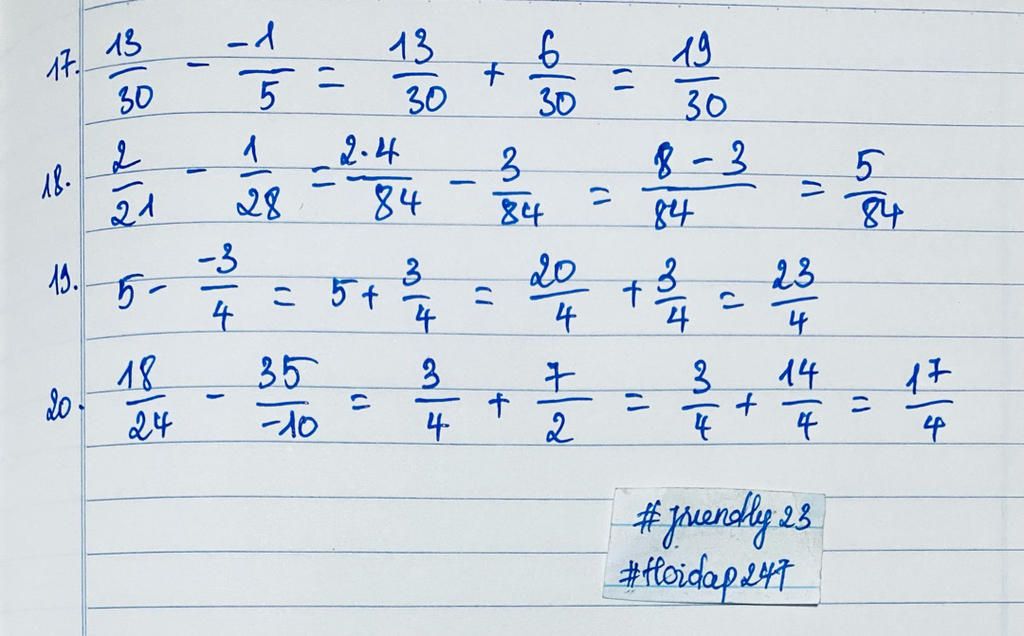 17. 13/30 - -1/5 = 13/30 + 6/30 = 19/30
18. 2/21 - 1/28 = 2·4/84 - 3/84 = 8-3/84 = 5/84
19. 5 - -3/4 = 5 + 3/4 = 20/4 + 3/4 = 23/4
20. 18/24 - 35/-10 = 3/4 + 7/2 = 3/4 + 14/4 = 17/4
#friendly23
#Hoidap247